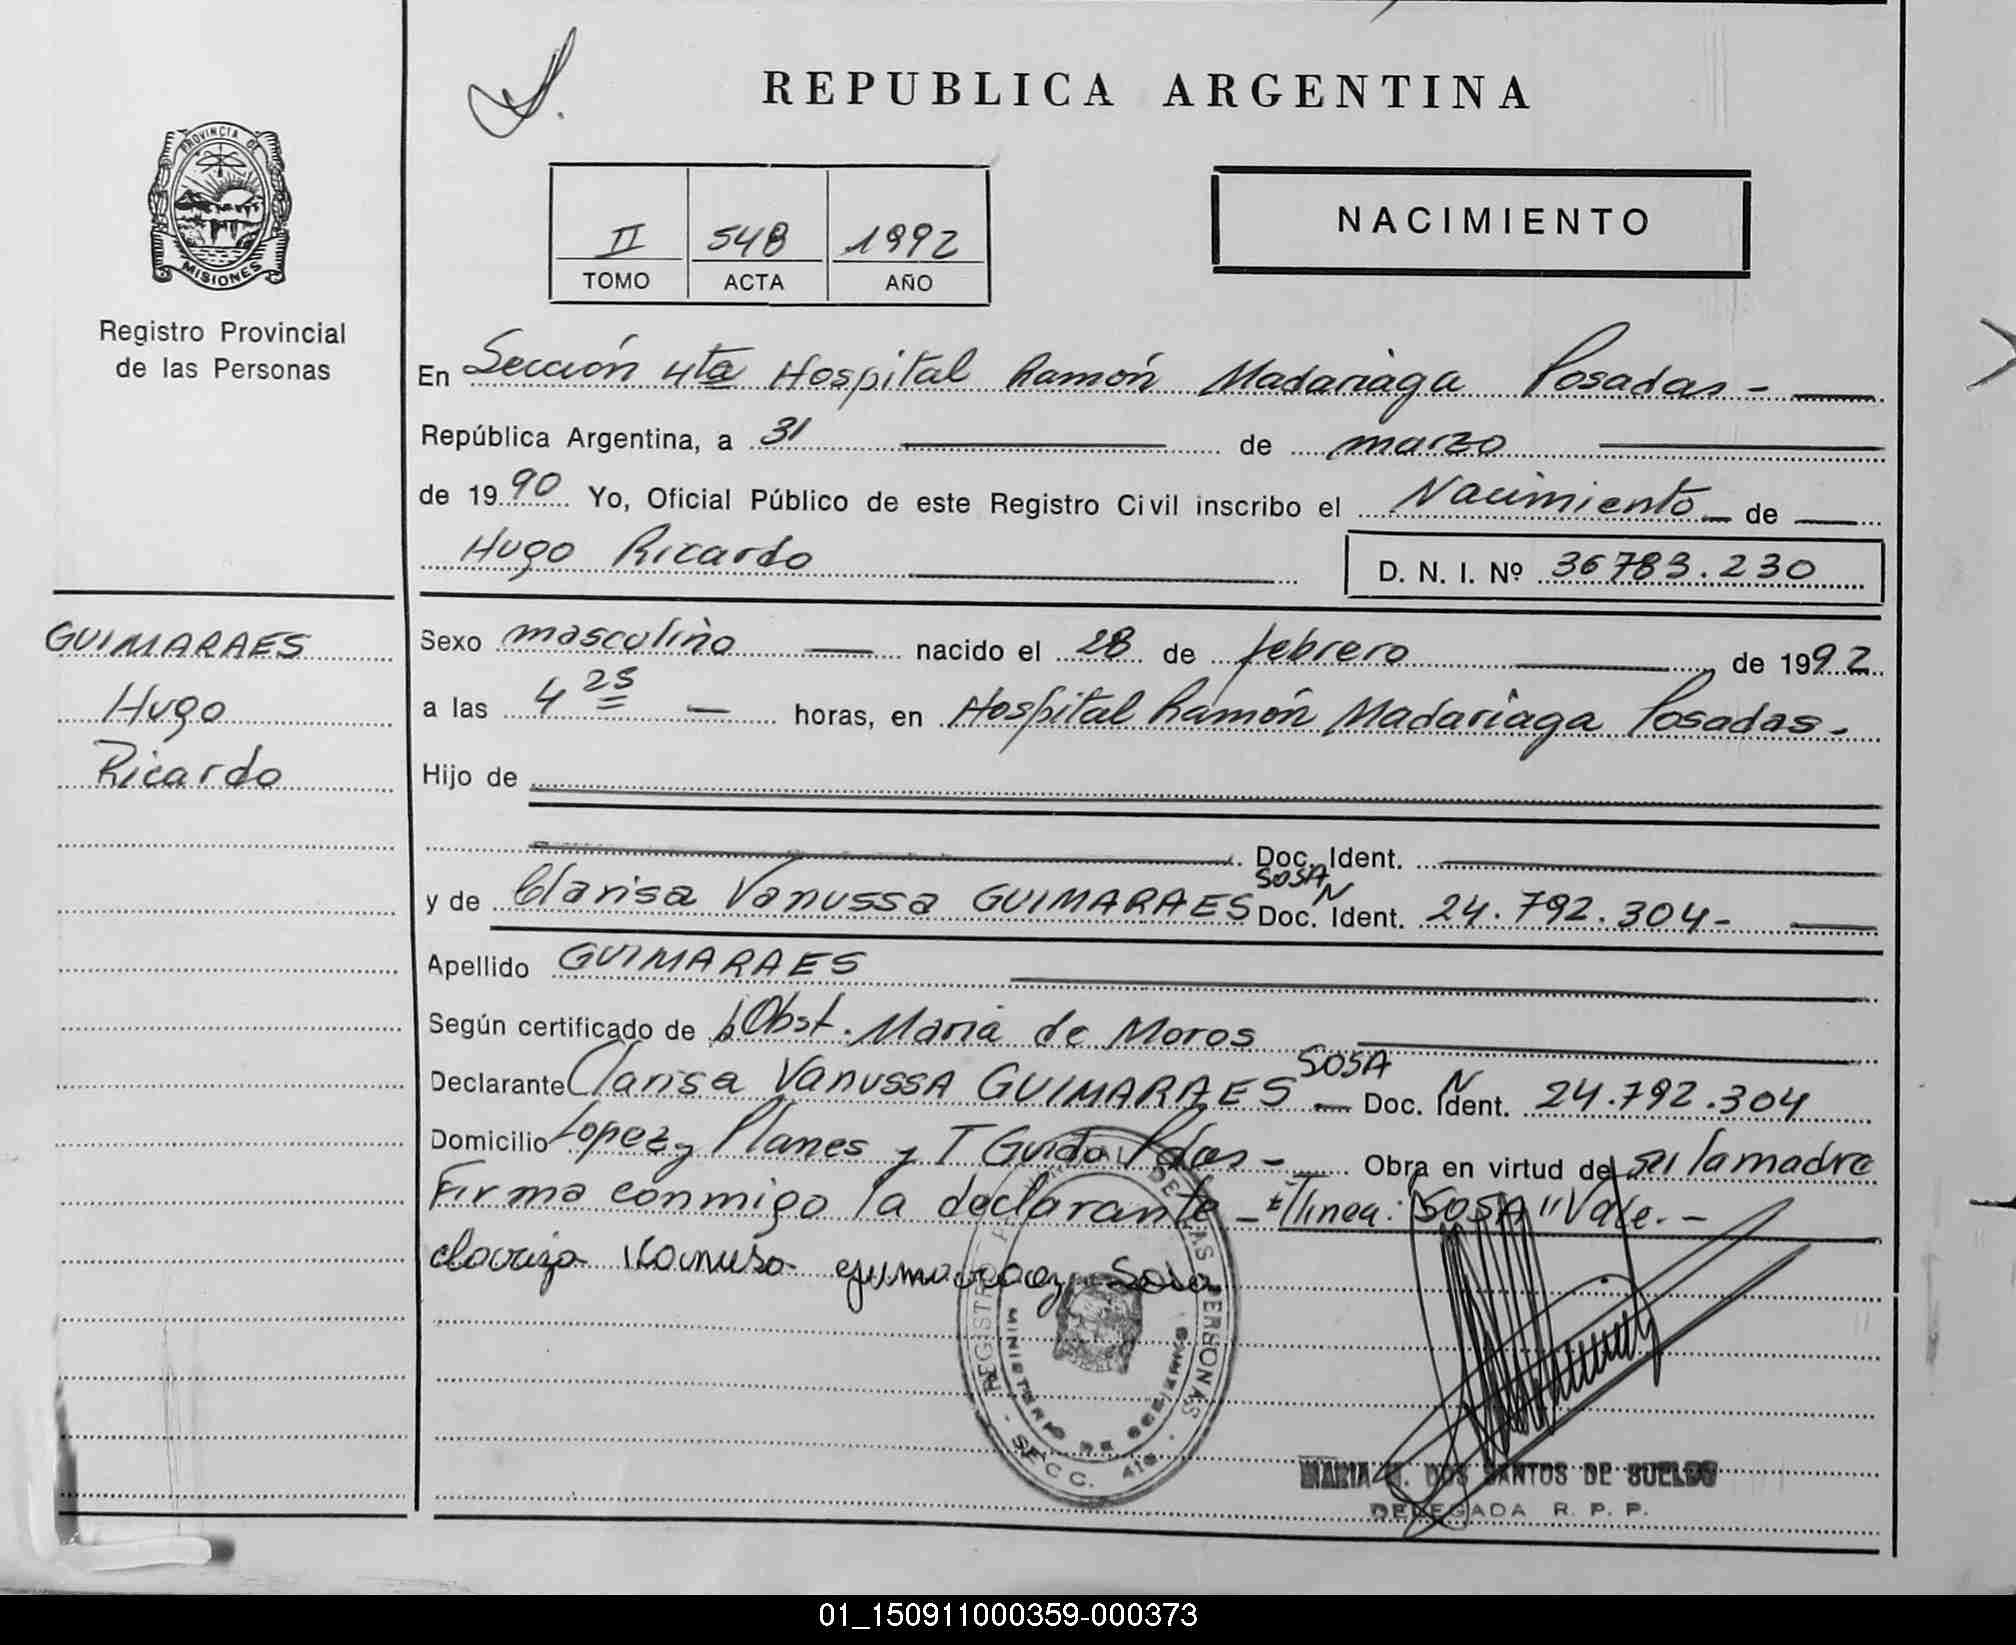 REPUBLICA ARGENTINA
PROVINCIA DE
MISIONES
Registro Provincial
de las Personas
II 548 1992
TOMO ACTA AÑO
NACIMIENTO
En Sección 4ta Hospital Ramón Madariaga Posadas -
República Argentina, a 31 de marzo
de 1990 Yo, Oficial Público de este Registro Civil inscribo el Nacimiento de
Hugo Ricardo D. N. I. Nº 36783.230
GUIMARAES
Hugo
Ricardo
Sexo masculino nacido el 28 de febrero de 1992
a las 4 25 horas, en Hospital Ramón Madariaga Posadas -
Hijo de
Doc. Ident.
y de Clarisa Vanussa GUIMARAES SOSA Doc. N Ident. 24.792.304-
Apellido GUIMARAES
Según certificado de Obst. Maria de Moros
Declarante Clarisa Vanussa GUIMARAES SOSA Doc. N Ident. 24.792.304
Domicilio Lopez y Planes y T Guido Pdas - Obra en virtud de ser la madre
Firma conmigo la declarante - E/linea: "SOSA" Vale. -
REGISTRO DE LAS PERSONAS
MINISTERIO DE GOBIERNO
SECC. 4ta
MARIA DOS SANTOS DE SUELDO
DELEGADA R. P. P.
01_150911000359-000373